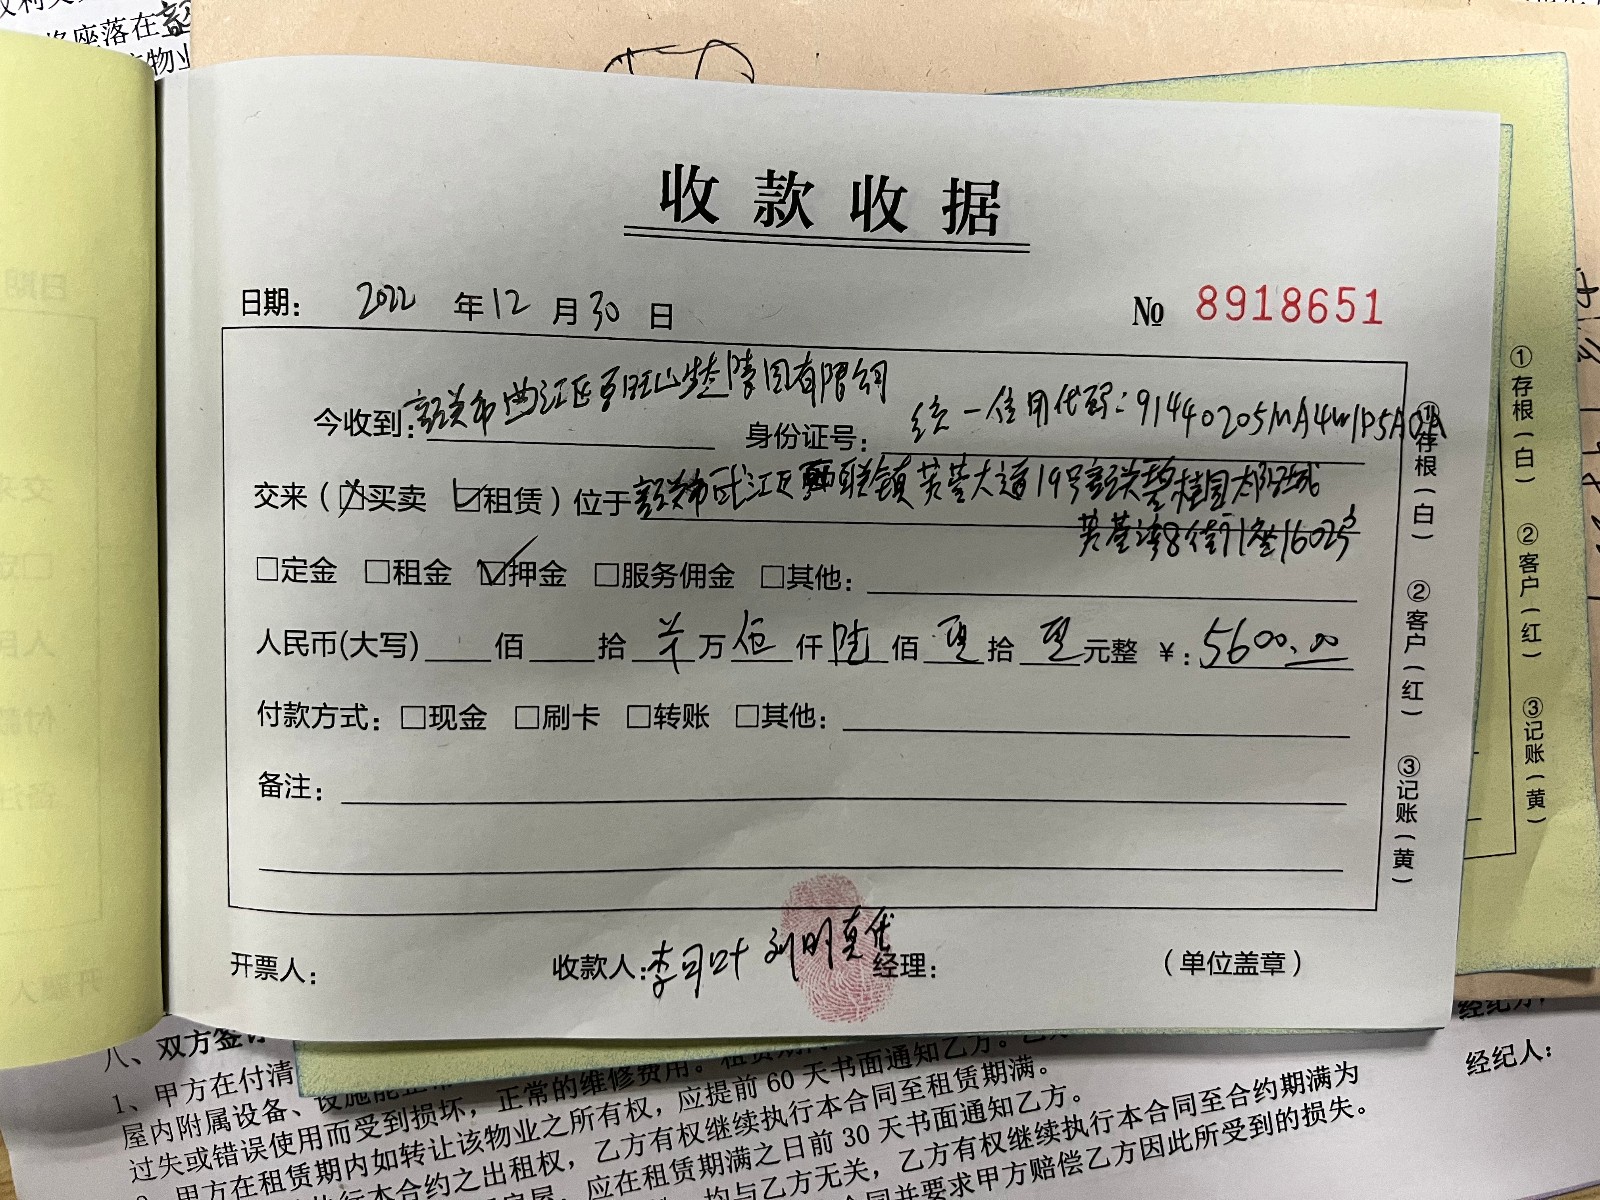 座落在
物业
收款收据
日期: 2022 年 12 月 30 日 № 8918651
今收到: 韶关市曲江区 有限公司 身份证号: 统一信用代码:91440205MA4W1P5A0A
交来(☒买卖 ☑租赁)位于 韶关市武江区西联镇芙蓉大道19号韶关碧桂园太阳城
芙蓉湾8街1座1602号
□定金 □租金 ☑押金 □服务佣金 □其他:
人民币(大写) 佰 拾 羊 万 伍 仟 陆 佰 零 拾 零 元整 ¥: 5600.00
付款方式: □现金 □刷卡 □转账 □其他:
备注:
开票人: 收款人: 李月叶 刘明真代 经理: (单位盖章)
①存根(白) ②客户(红) ③记账(黄)
①存根(白) ②客户(红) ③记账(黄)
八、双方签
1、甲方在付清
屋内附属设备、设施能正常
过失或错误使用而受到损坏,正常的维修费用。租赁期内
甲方在租赁期内如转让该物业之所有权,应提前 60 天书面通知乙方。乙
执行本合约之出租权,乙方有权继续执行本合同至租赁期满。
房屋,应在租赁期满之日前 30 天书面通知乙方。
均与乙方无关,乙方有权继续执行本合同至合约期满为
合同并要求甲方赔偿乙方因此所受到的损失。
经纪方:
经纪人: